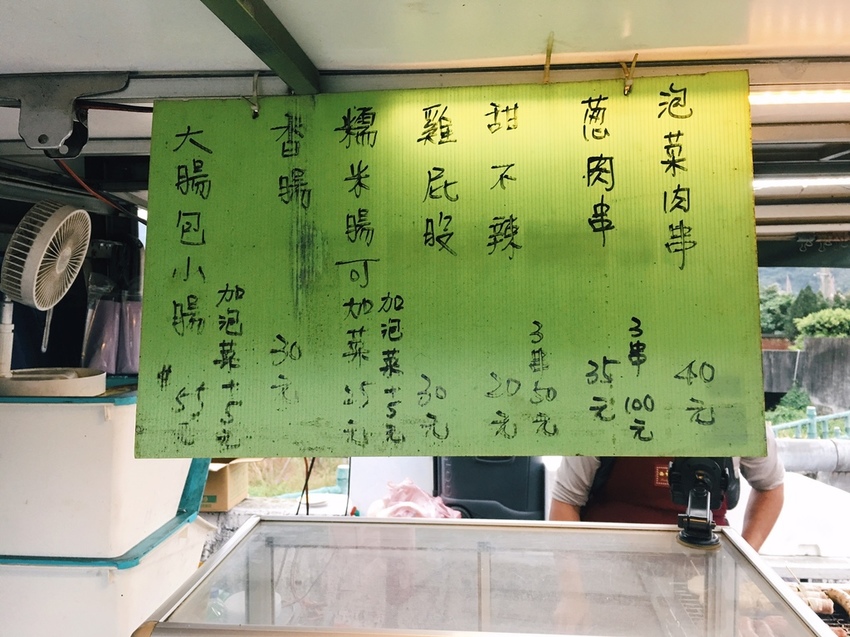 泡菜肉串 40元
蔥肉串 35元
3串100元
甜不辣 20元
3串50元
雞屁股 30元
糯米腸可加菜 25元
加泡菜+5元
香腸 30元
大腸包小腸 55元
加泡菜+5元